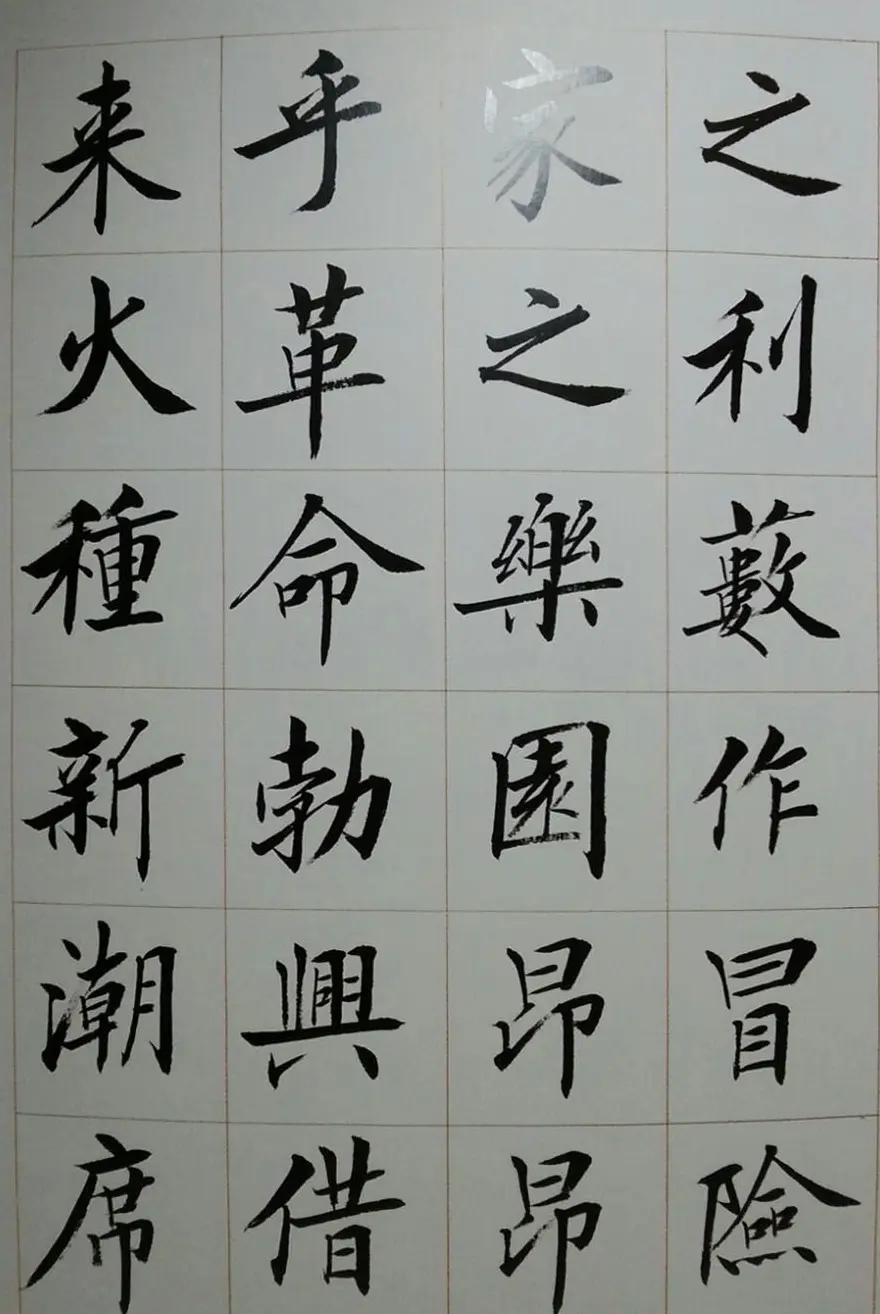 之利藪作冒險
家之樂園昂昂
乎革命勃興借
来火種新潮席